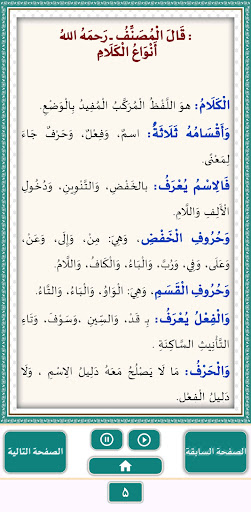 قَالَ الْمُصَنِّفُ - رَحِمَهُ اللهُ :
أَنْوَاعُ الْكَلَامِ
الْكَلَامُ: هوَ اللَّفْظُ الْمُرَكَّبُ الْمُفِيدُ بِالْوَضْعِ.
وَأَقْسَامُهُ ثَلَاثَةٌ: اسمٌ، وَفِعْلٌ، وَحَرْفٌ جَاءَ
لِمَعْنًى.
فَالِاسْمُ يُعْرَفُ: بالخَفْضِ، وَالتَّنْوِينِ، وَدُخُولِ
الْأَلِفِ وَاللَّامِ.
وَحُرُوفِ الْخَفْضِ، وَهِيَ: مِنْ، وَإِلَى، وَعَنْ،
وَعَلَى، وَفِي، وَرُبَّ، وَالْبَاءُ، وَالْكَافُ، وَاللَّامُ.
وَحُرُوفِ الْقَسَمِ، وَهِيَ: الْوَاوُ، وَالْبَاءُ، وَالتَّاءُ.
وَالْفِعْلُ يُعْرَفُ: بِـ قَدْ، وَالسِّينِ ،وَسَوْفَ، وَتَاءِ
التَّأْنِيثِ السَّاكِنَةِ.
وَالْحَرْفُ: مَا لَا يَصْلُحُ مَعَهُ دَلِيلُ الِاسْمِ ، وَلَا
دَلِيلُ الْفِعْلِ.
الصفحة السابقة
الصفحة التالية
٥